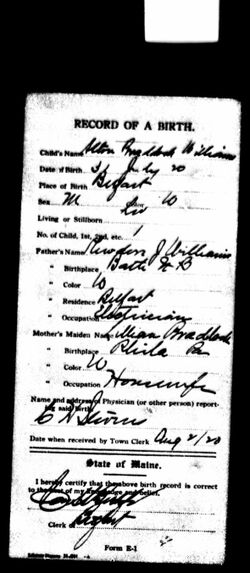 RECORD OF A BIRTH.
Child's Name Alton Braddock Williams
Date of Birth 31 July 20
Place of Birth Belfast
Sex M W
Living or Stillborn Liv
No. of Child, 1st, 2nd, etc. 1
Father's Name J Williams
" Birthplace
" Color W
" Residence Belfast
" Occupation Electrician
Mother's Maiden Name Lillian Braddock
" Birthplace Phila Pa
" Color W
" Occupation Housewife
Name and address of Physician (or other person) report-
ing said birth
Date when received by Town Clerk Aug 2/20
State of Maine.
I hereby certify that the above birth record is correct
to the best of my knowledge and belief.
Clerk Belfast
Form E-1